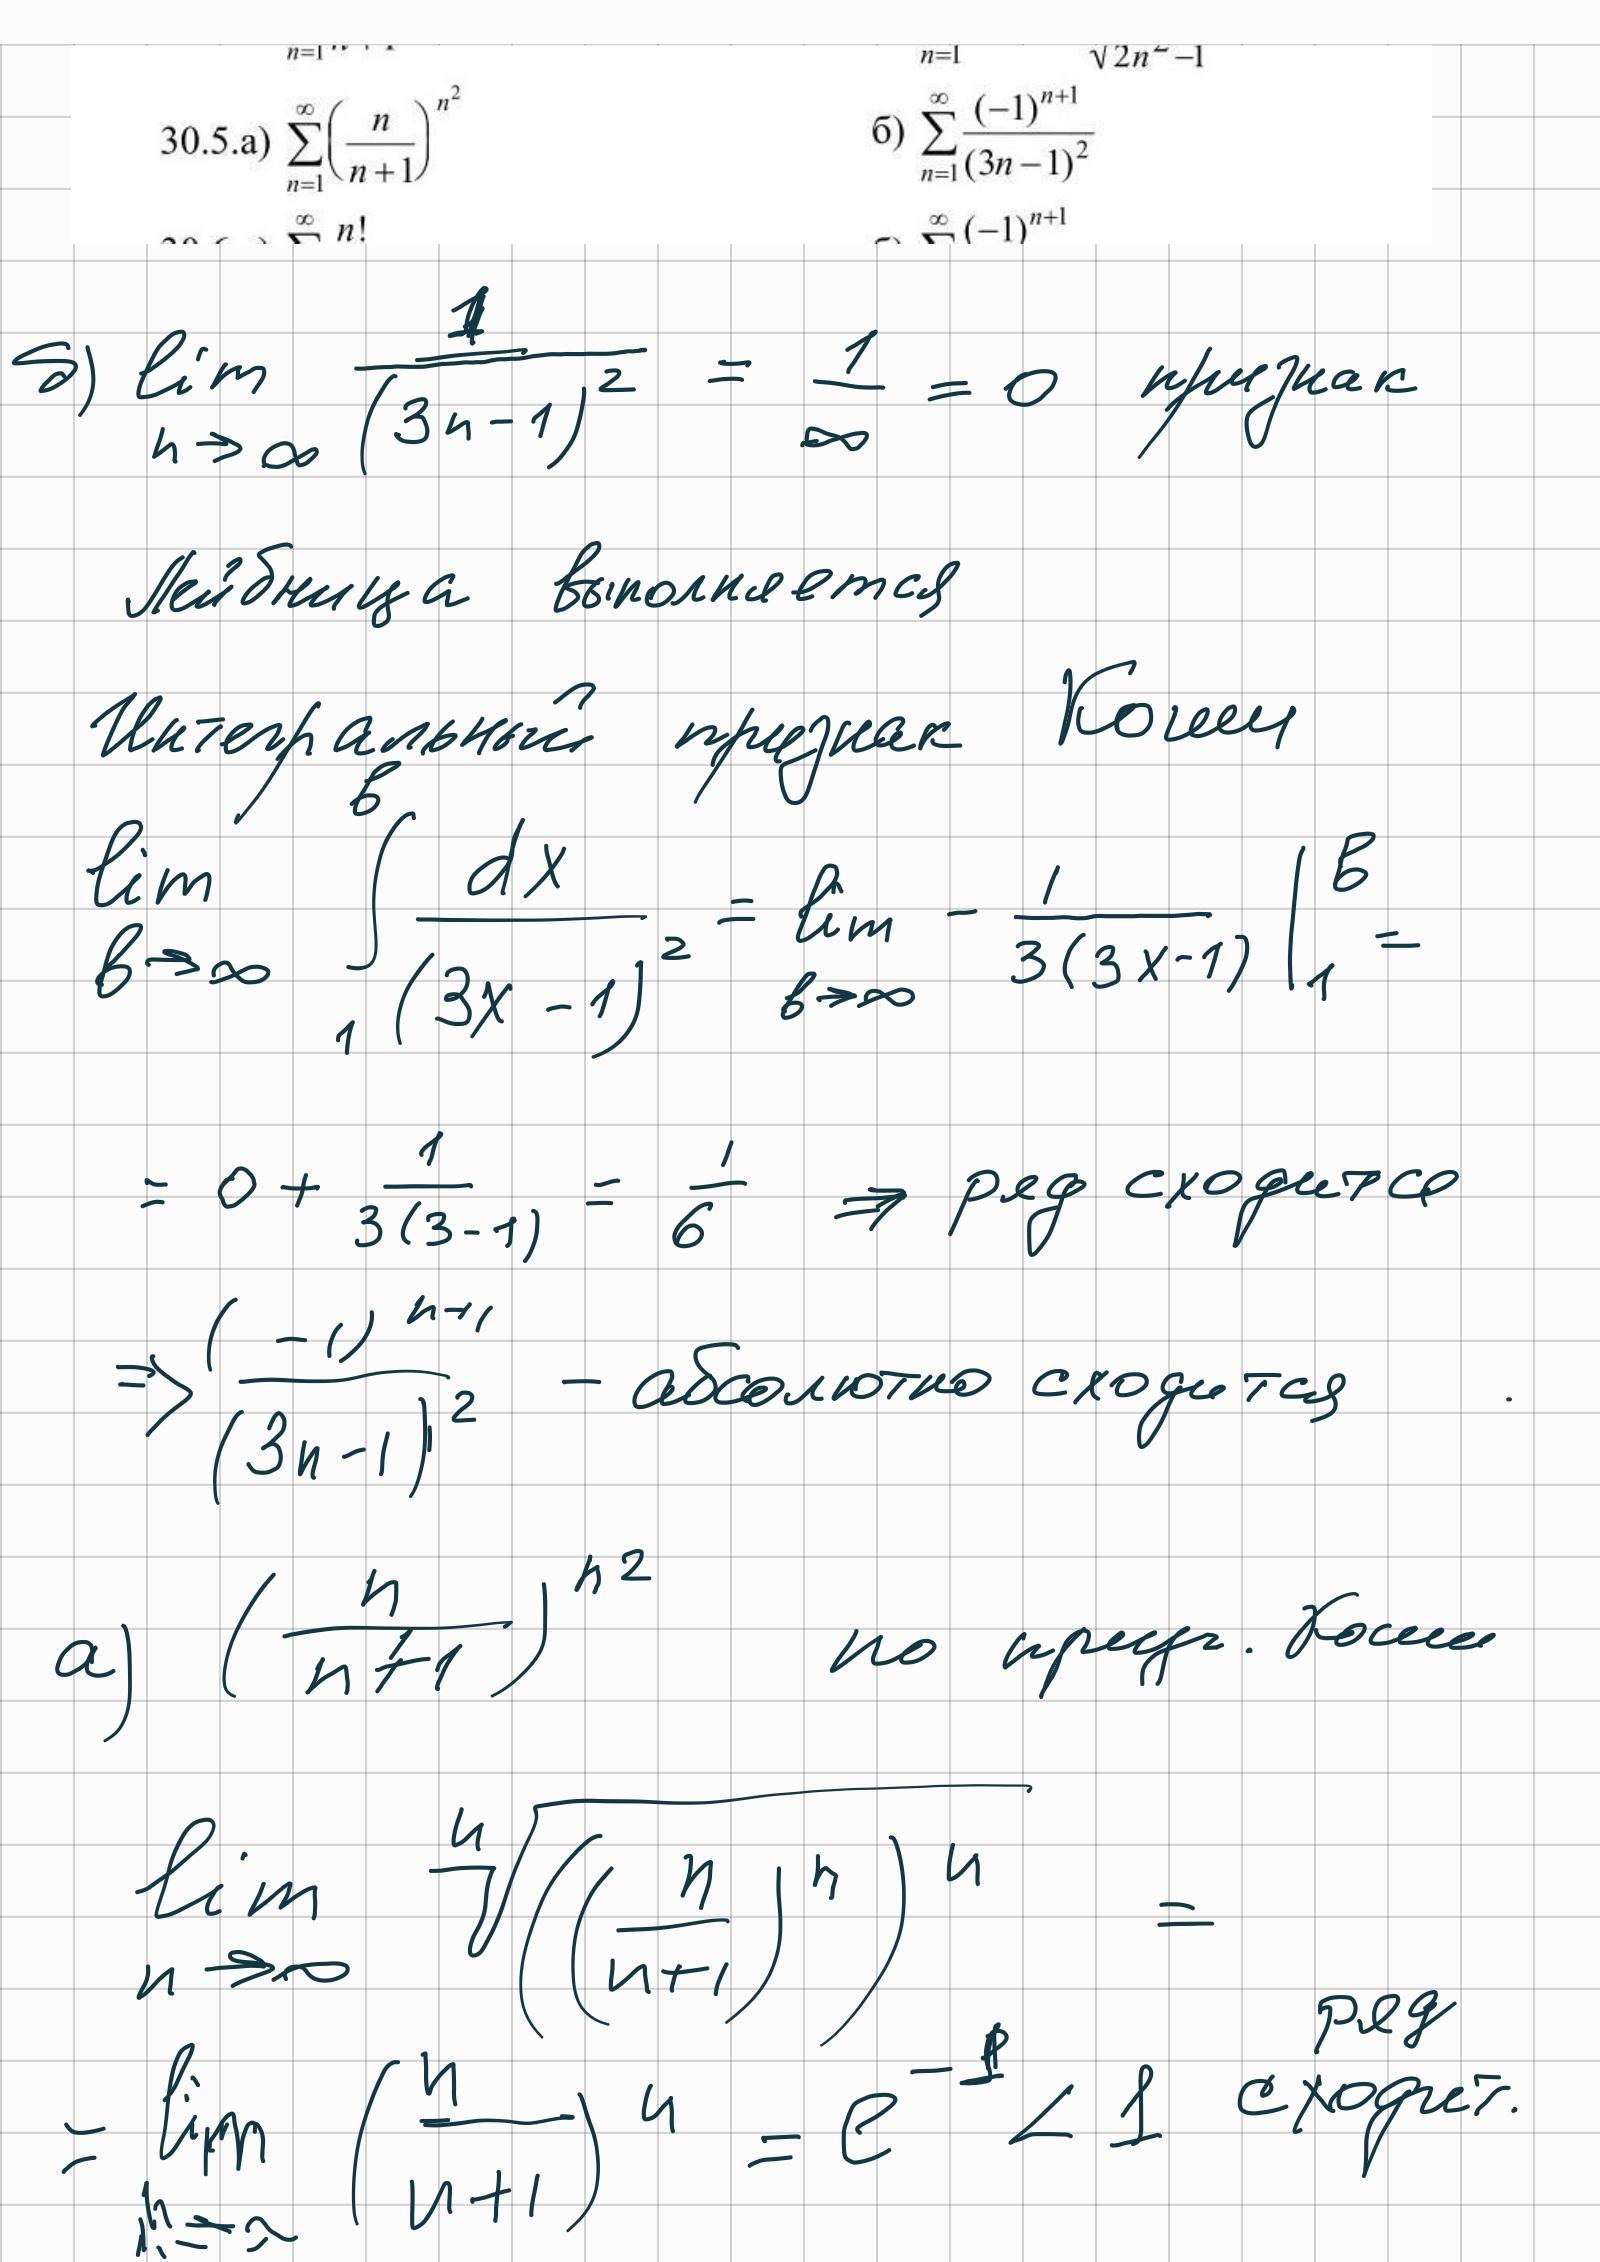 30.5.а) ∑_{n=1}^{∞} (n/(n+1))^{n^2} б) ∑_{n=1}^{∞} (-1)^{n+1}/(3n-1)^2
n! (-1)^{n+1}
б) lim_{n→∞} 1/(3n-1)^2 = 1/∞ = 0 признак
Лейбница выполняется
Интегральный признак Коши
lim_{в→∞} ∫_1^в dx/(3x-1)^2 = lim_{в→∞} - 1/(3(3x-1)) |_1^в =
= 0 + 1/(3(3-1)) = 1/6 ⇒ ряд сходится
⇒ (-1)^{n+1}/(3n-1)^2 - абсолютно сходится
а) (n/(n+1))^{n^2} по призн. Коши
lim_{n→∞} ^n√(((n/(n+1))^n)^n) =
= lim_{n→∞} (n/(n+1))^n = e^{-1} < 1 ряд сходит.